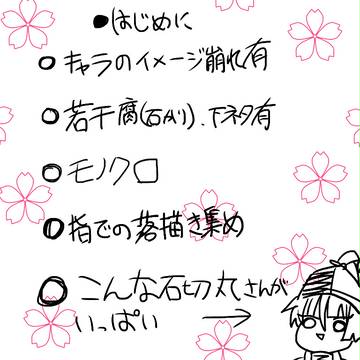 ●はじめに
○キャラのイメージ崩れ有
○若干腐(石かり)、下ネタ有
○モノクロ
○指での落描き集め
○こんな石切丸さんが
いっぱい →